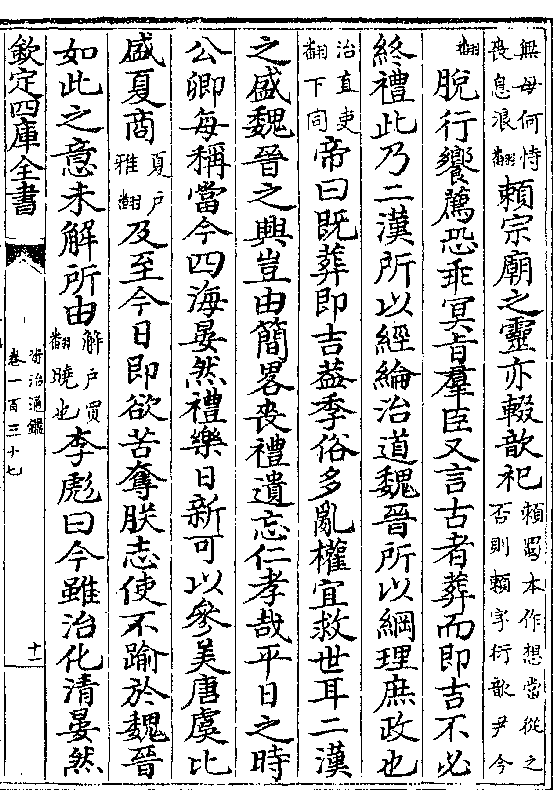 無母何恃喪息浪翻賴宗廟之靈亦輟歆祀賴蜀本作想當從之否則賴字衍歆尹今
翻脫行饗薦恐乖冥旨羣臣又言古者葬而即吉不必
終禮此乃二漢所以經綸治道魏晉所以綱理庶政也
治直吏翻下同帝曰既葬即吉蓋季俗多亂權宜救世耳二漢
之盛魏晉之興豈由簡畧喪禮遺忘仁孝哉平日之時
公卿每稱當今四海晏然禮樂日新可以參美唐虞比
盛夏商夏戶雅翻及至今日即欲苦奪朕志使不踰於魏晉
如此之意未解所由解戶買翻曉也李彪曰今雖治化清晏然
欽定四庫全書
資治通鑑
卷一百三十七
十一